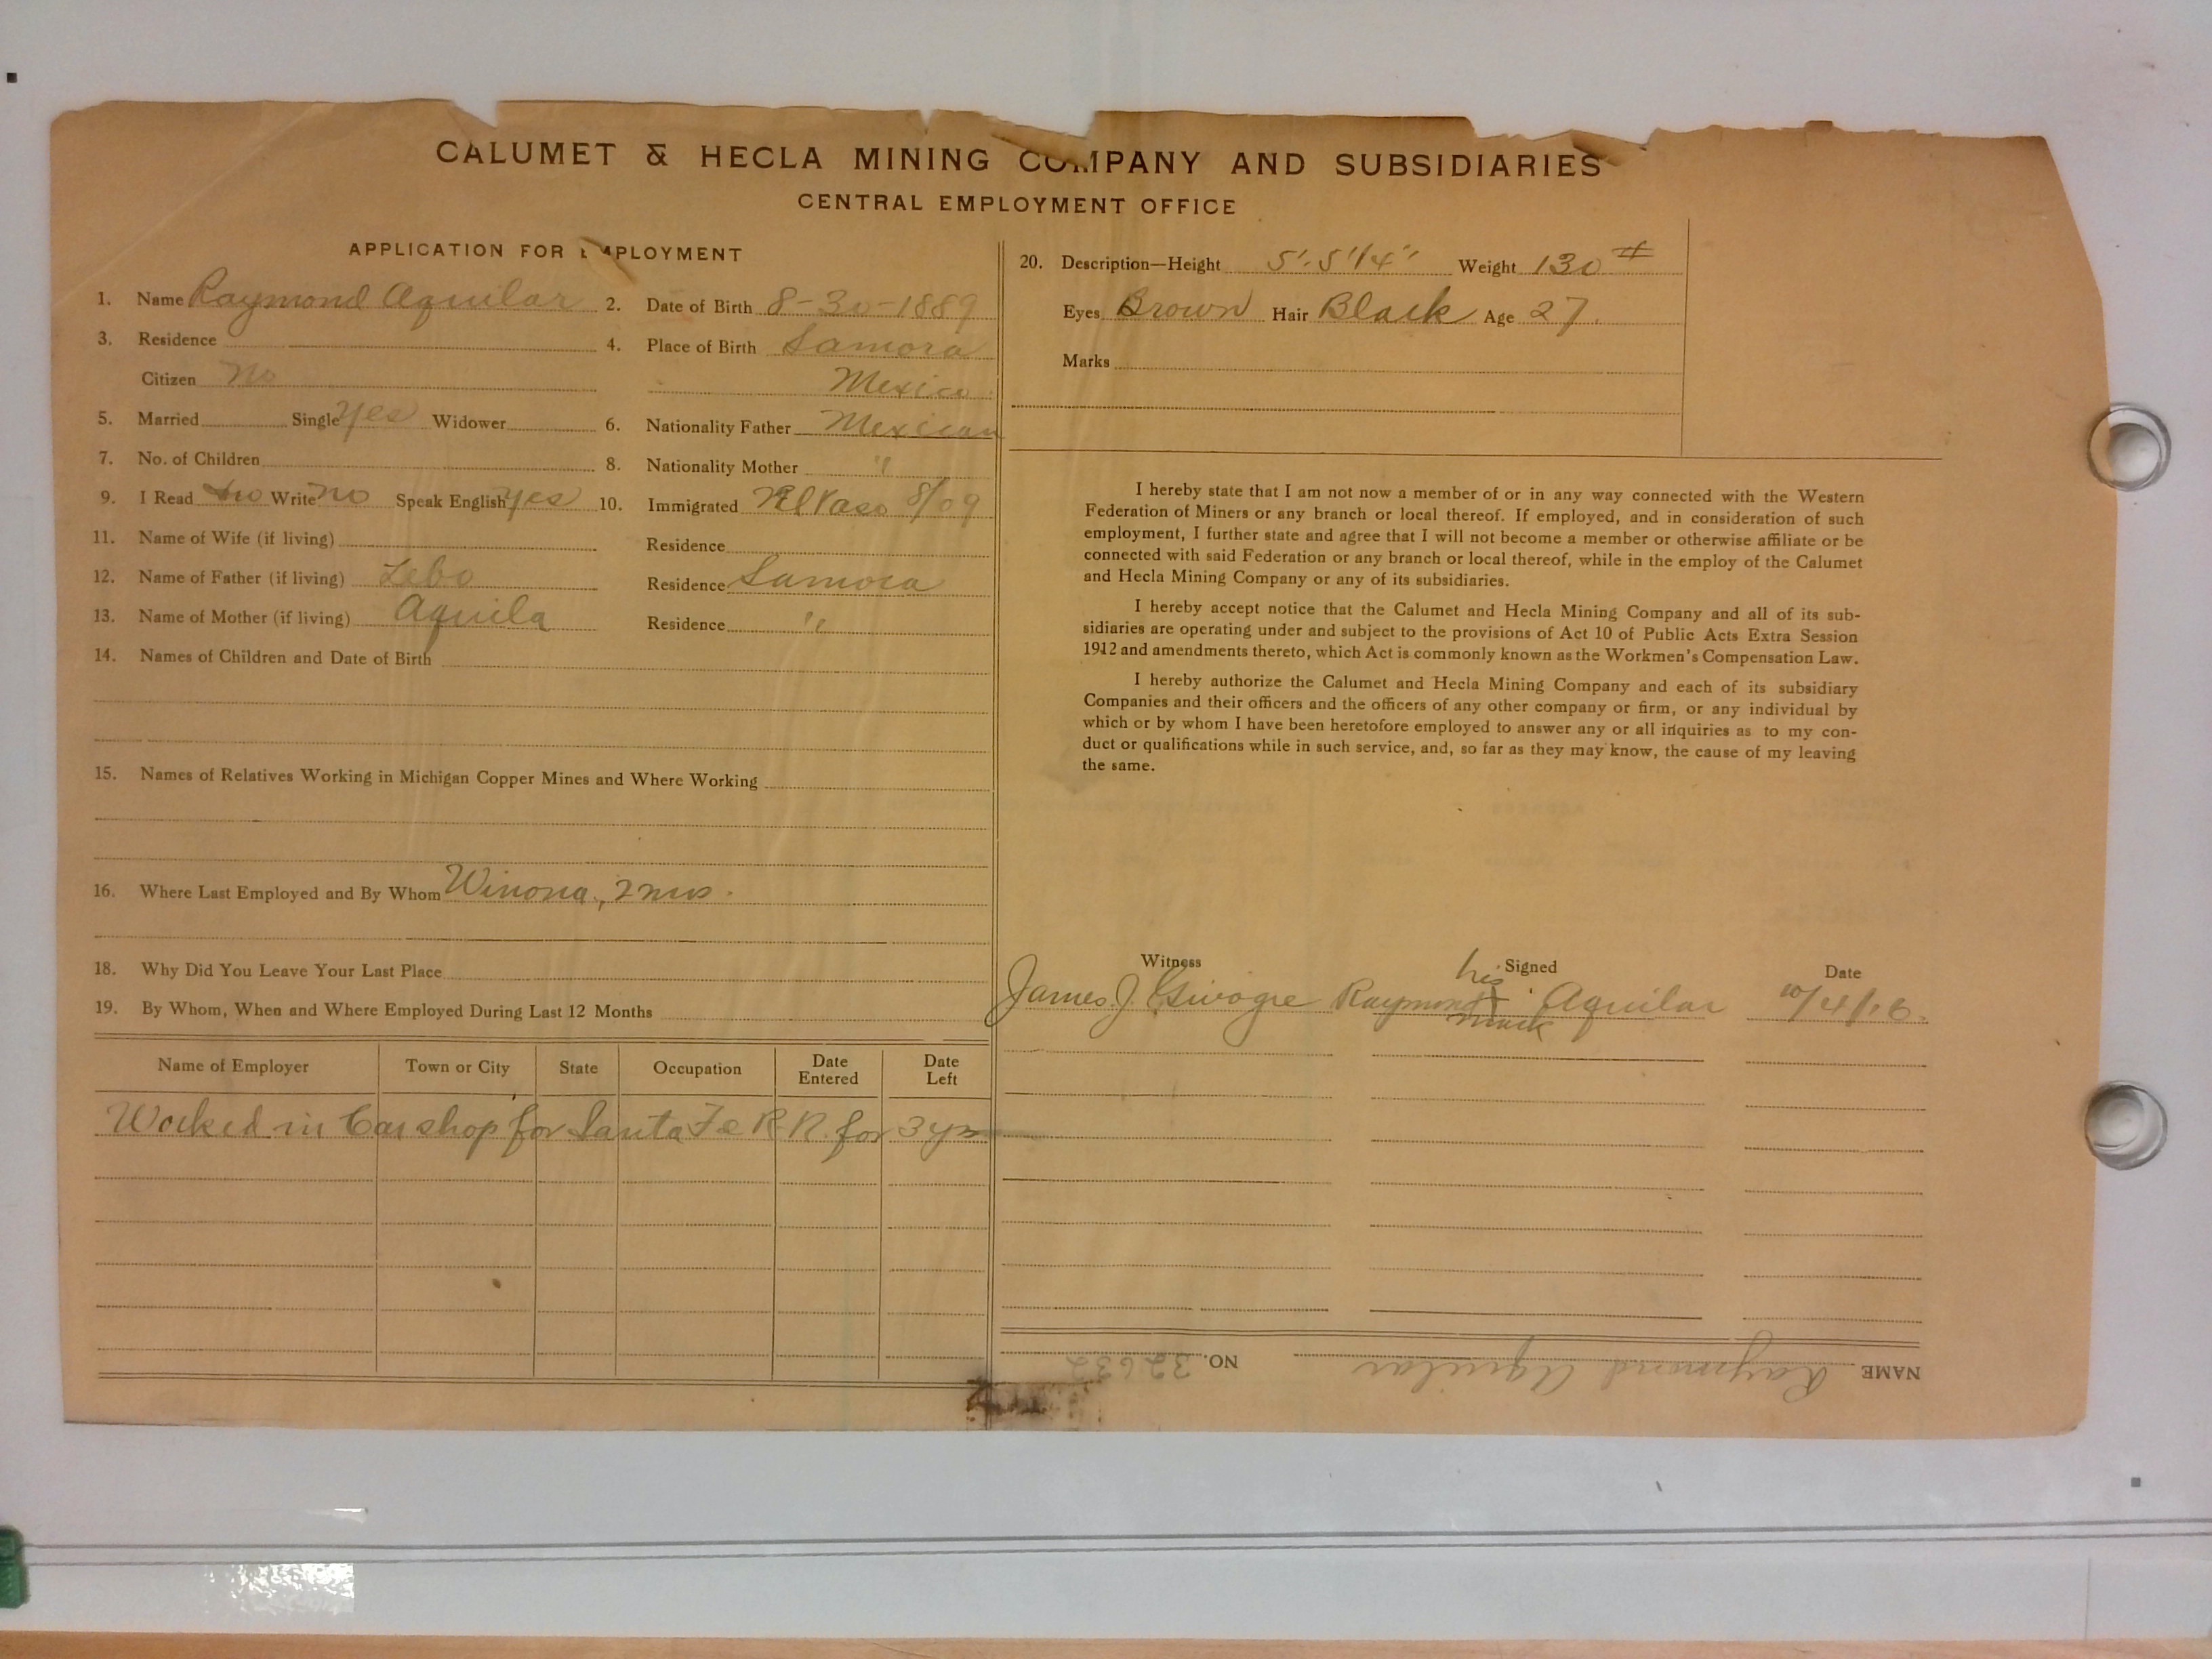 CALUMET & HECLA MINING COMPANY AND SUBSIDIARIES
CENTRAL EMPLOYMENT OFFICE
APPLICATION FOR EMPLOYMENT
1. Name Raymond Aguilar 2. Date of Birth 8-30-1889
3. Residence 4. Place of Birth Samora
Citizen no Mexico
5. Married Single yes Widower 6. Nationality Father Mexican
7. No. of Children 8. Nationality Mother "
9. I Read no Write no Speak English yes 10. Immigrated El Paso 8/09
11. Name of Wife (if living) Residence
12. Name of Father (if living) Lebo Residence Samora
13. Name of Mother (if living) Aquila Residence "
14. Names of Children and Date of Birth
15. Names of Relatives Working in Michigan Copper Mines and Where Working
16. Where Last Employed and By Whom Winona, 2 mos.
18. Why Did You Leave Your Last Place
19. By Whom, When and Where Employed During Last 12 Months
Name of Employer Town or City State Occupation Date Entered Date Left
Worked in Car shop for Santa Fe R.R. for 3 yrs
20. Description—Height 5'-5 1/4" Weight 130 #
Eyes Brown Hair Black Age 27.
Marks
I hereby state that I am not now a member of or in any way connected with the Western
Federation of Miners or any branch or local thereof. If employed, and in consideration of such
employment, I further state and agree that I will not become a member or otherwise affiliate or be
connected with said Federation or any branch or local thereof, while in the employ of the Calumet
and Hecla Mining Company or any of its subsidiaries.
I hereby accept notice that the Calumet and Hecla Mining Company and all of its sub-
sidiaries are operating under and subject to the provisions of Act 10 of Public Acts Extra Session
1912 and amendments thereto, which Act is commonly known as the Workmen's Compensation Law.
I hereby authorize the Calumet and Hecla Mining Company and each of its subsidiary
Companies and their officers and the officers of any other company or firm, or any individual by
which or by whom I have been heretofore employed to answer any or all inquiries as to my con-
duct or qualifications while in such service, and, so far as they may know, the cause of my leaving
the same.
Witness his Signed Date
James J. Raymond X Aguilar 10/4/16.
mark
NAME Raymond Aguilar NO. 32632